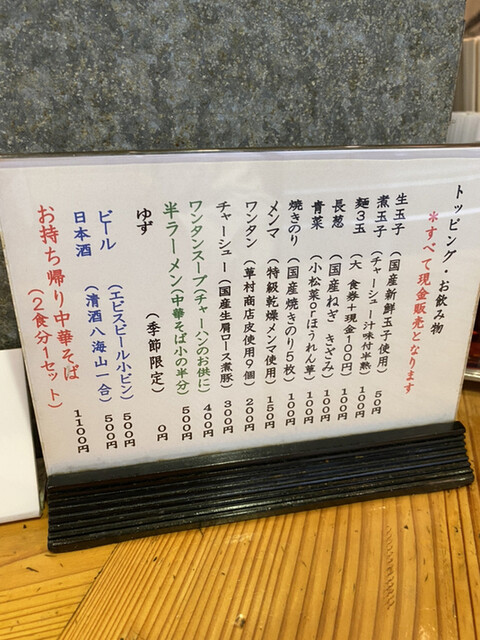 トッピング・お飲み物
＊すべて現金販売となります
生玉子 （国産新鮮玉子使用） 50円
煮玉子 （チャーシュー汁味付半熟） 100円
麺３玉 （大 食券＋現金100円） 100円
長葱 （国産ねぎ きざみ） 100円
青菜 （小松菜orほうれん草） 100円
焼きのり （国産焼きのり５枚） 100円
メンマ （特級乾燥メンマ使用） 150円
ワンタン （草村商店皮使用９個） 200円
チャーシュー（国産生肩ロース煮豚） 300円
ワンタンスープ（チャーハンのお供に） 400円
半ラーメン（中華そば小の半分） 500円
ゆず （季節限定） 0円
ビール （エビスビール小ビン） 500円
日本酒 （清酒八海山一合） 500円
お持ち帰り中華そば
（２食分１セット） 1100円